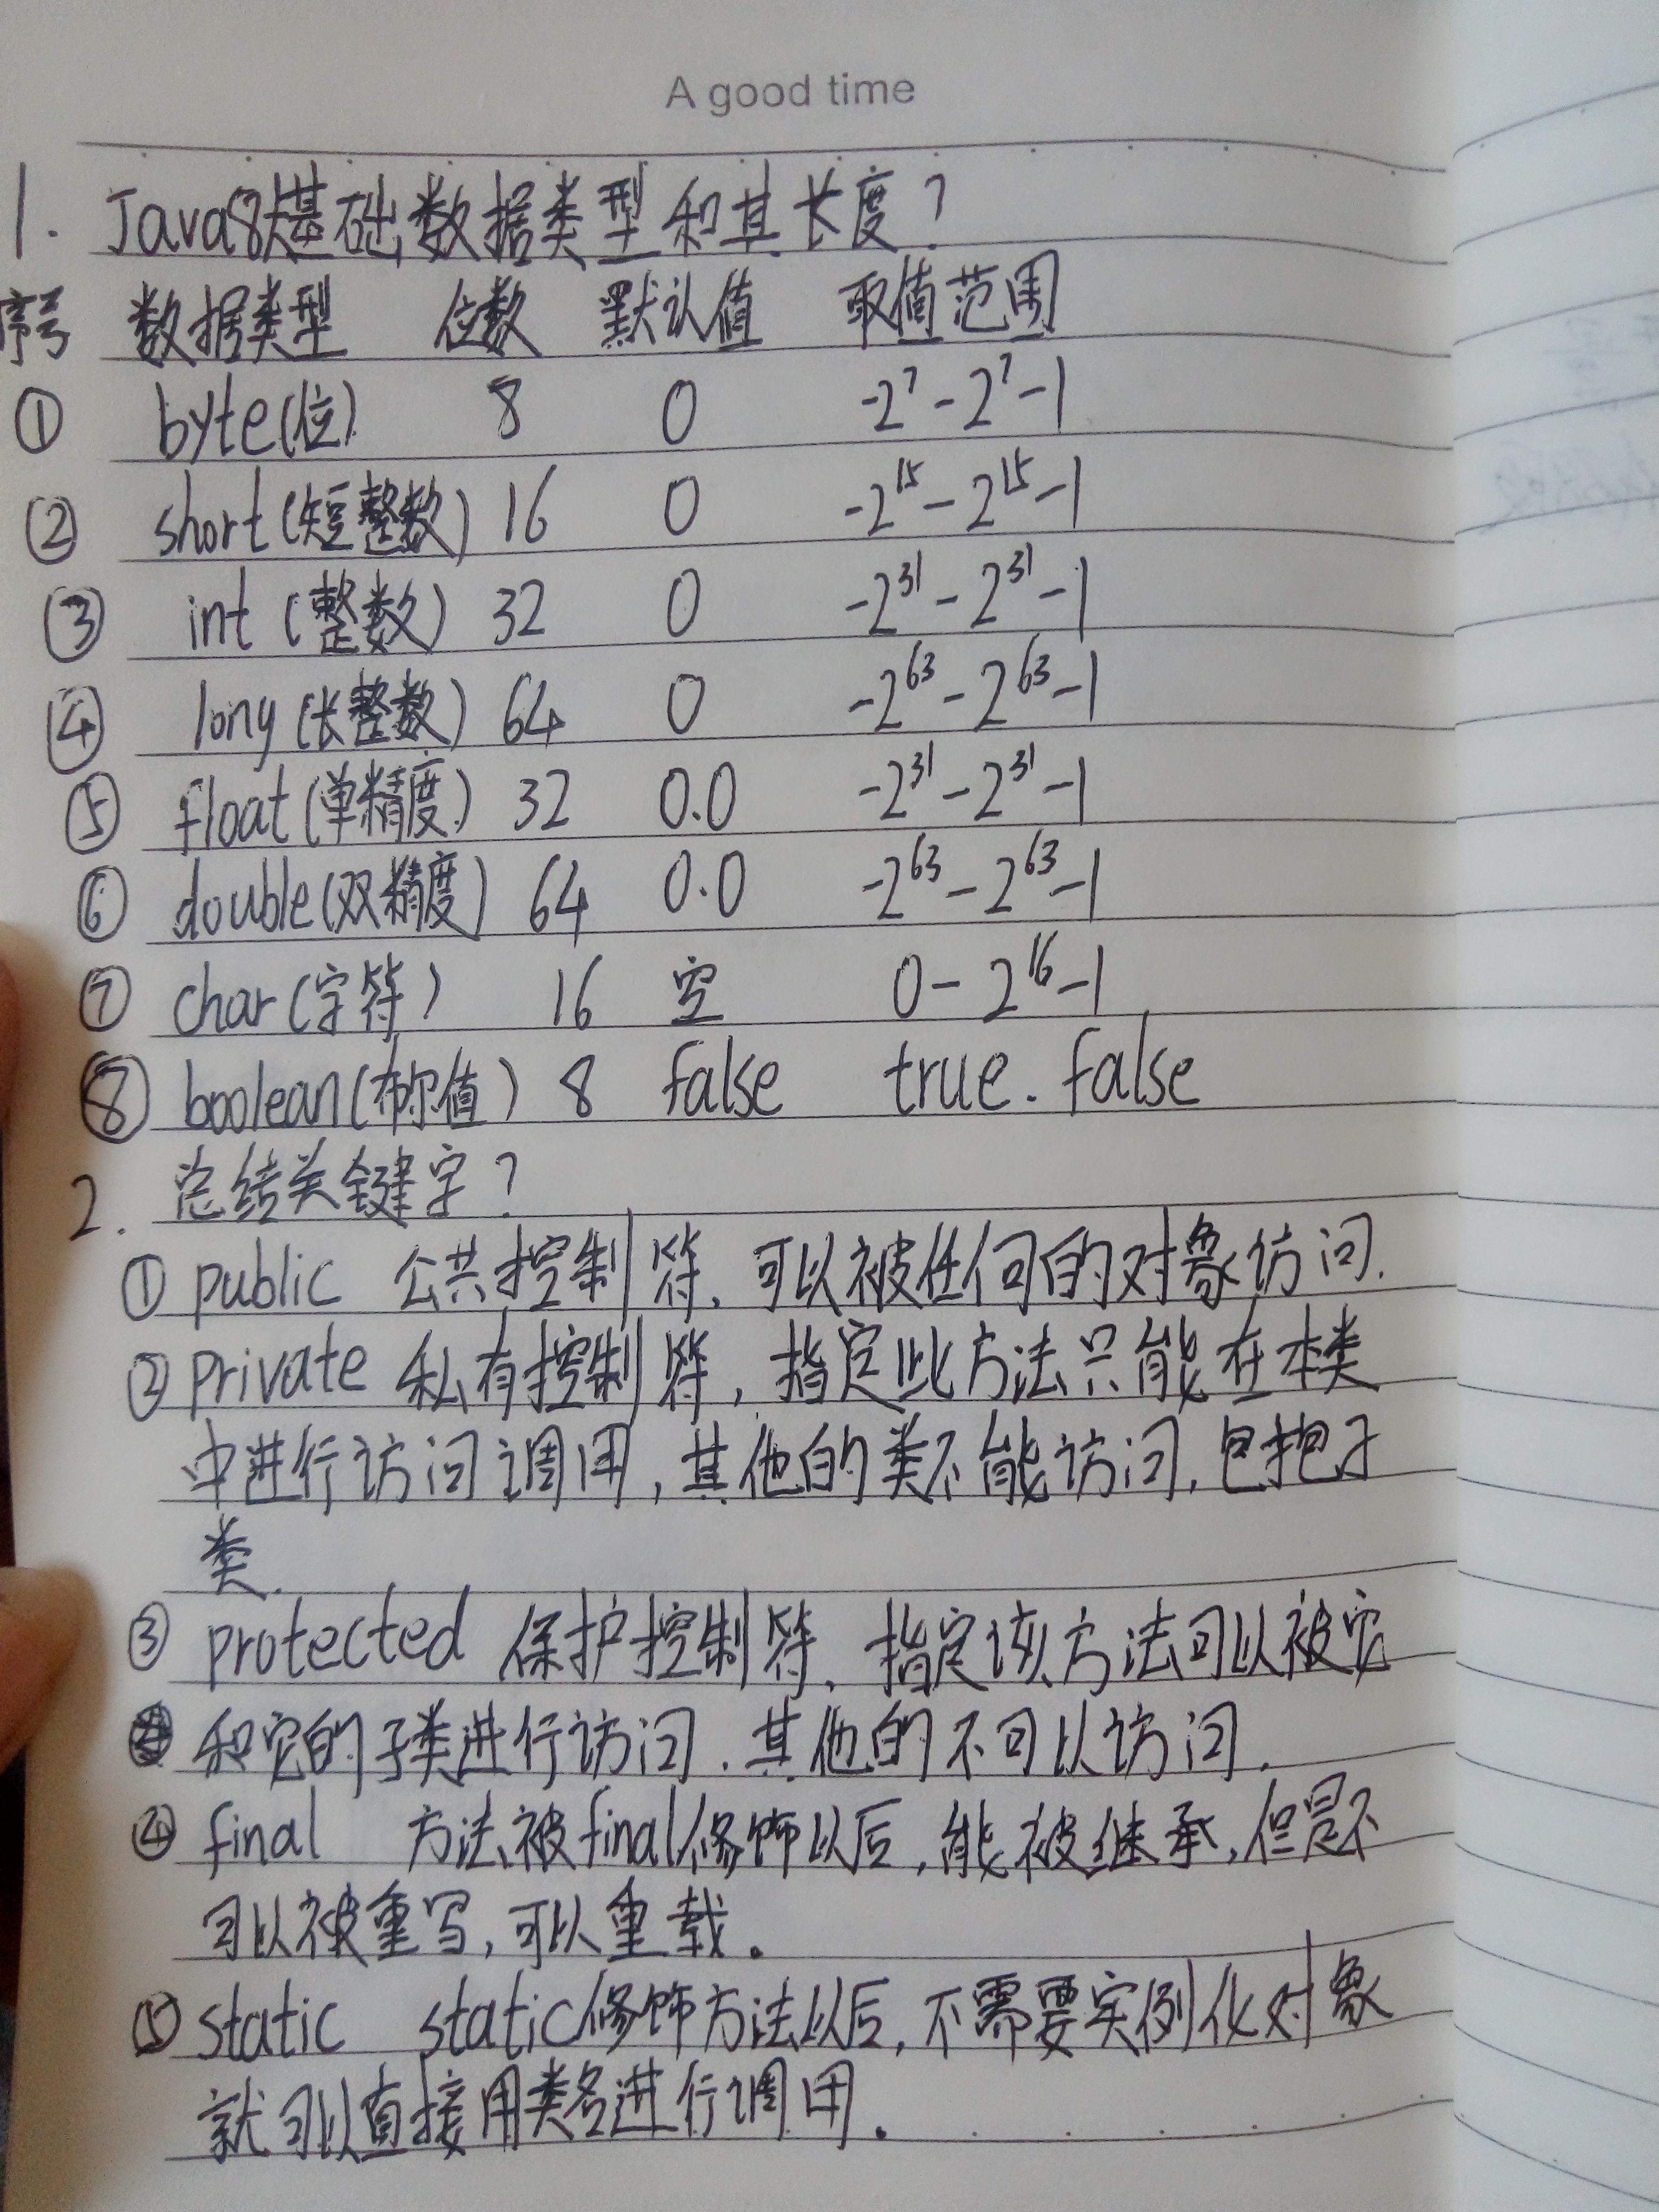 A good time
1. Java8大基础数据类型和其长度?
序号 数据类型 位数 默认值 取值范围
① byte(位) 8 0 -2⁷-2⁷-1
② short(短整数) 16 0 -2¹⁵-2¹⁵-1
③ int(整数) 32 0 -2³¹-2³¹-1
④ long(长整数) 64 0 -2⁶³-2⁶³-1
⑤ float(单精度) 32 0.0 -2³¹-2³¹-1
⑥ double(双精度) 64 0.0 -2⁶³-2⁶³-1
⑦ char(字符) 16 空 0-2¹⁶-1
⑧ boolean(布尔值) 8 false true.false
2. 总结关键字?
① public 公共控制符,可以被任何的对象访问.
② private 私有控制符,指定此方法只能在本类
中进行访问调用,其他的类不能访问,包抱子
类.
③ protected 保护控制符,指定该方法可以被它
和它的子类进行访问.其他的不可以访问.
④ final 方法被final修饰以后,能被继承,但是不
可以被重写,可以重载。
⑤ static static修饰方法以后,不需要实例化对象
就可以直接用类名进行调用。